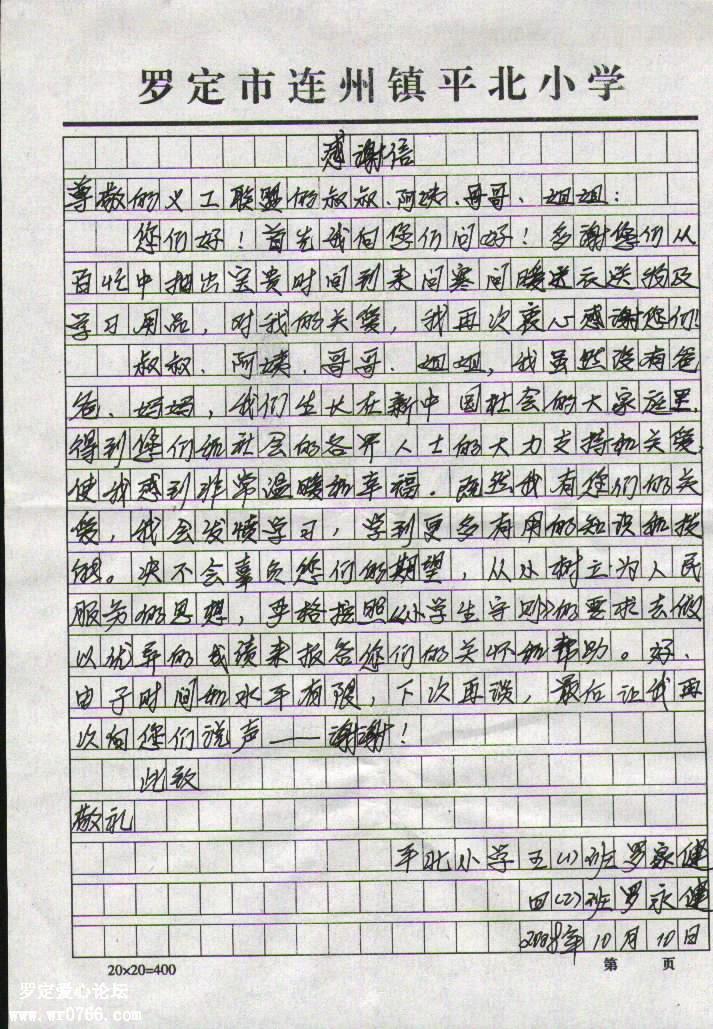 罗定市连州镇平北小学
感谢信
尊敬的义工联盟的叔叔、阿姨、哥哥、姐姐：
您们好！首先我向您们问好！多谢您们从
百忙中抽出宝贵时间到来问寒问暖送衣送物及
学习用品，对我的关爱，我再次衷心感谢您们！
叔叔、阿姨、哥哥、姐姐，我虽然没有爸
爸、妈妈，我们生长在新中国社会的大家庭里，
得到您们和社会的各界人士的大力支持和关爱，
使我感到非常温暖和幸福。既然我有您们的关
爱，我会发愤学习，学到更多有用的知识和技
能。决不会辜负您们的期望，从小树立为人民
服务的思想，严格按照《小学生守则》的要求去做
以优异的成绩来报答您们的关怀和帮助。好、
由于时间和水平有限，下次再谈，最后让我再
次向您们说声——谢谢！
此致
敬礼
平北小学五(1)班罗家健
四(2)班罗永健
2008年10月10日
20×20=400
第 页
罗定爱心论坛
www.wr0766.com